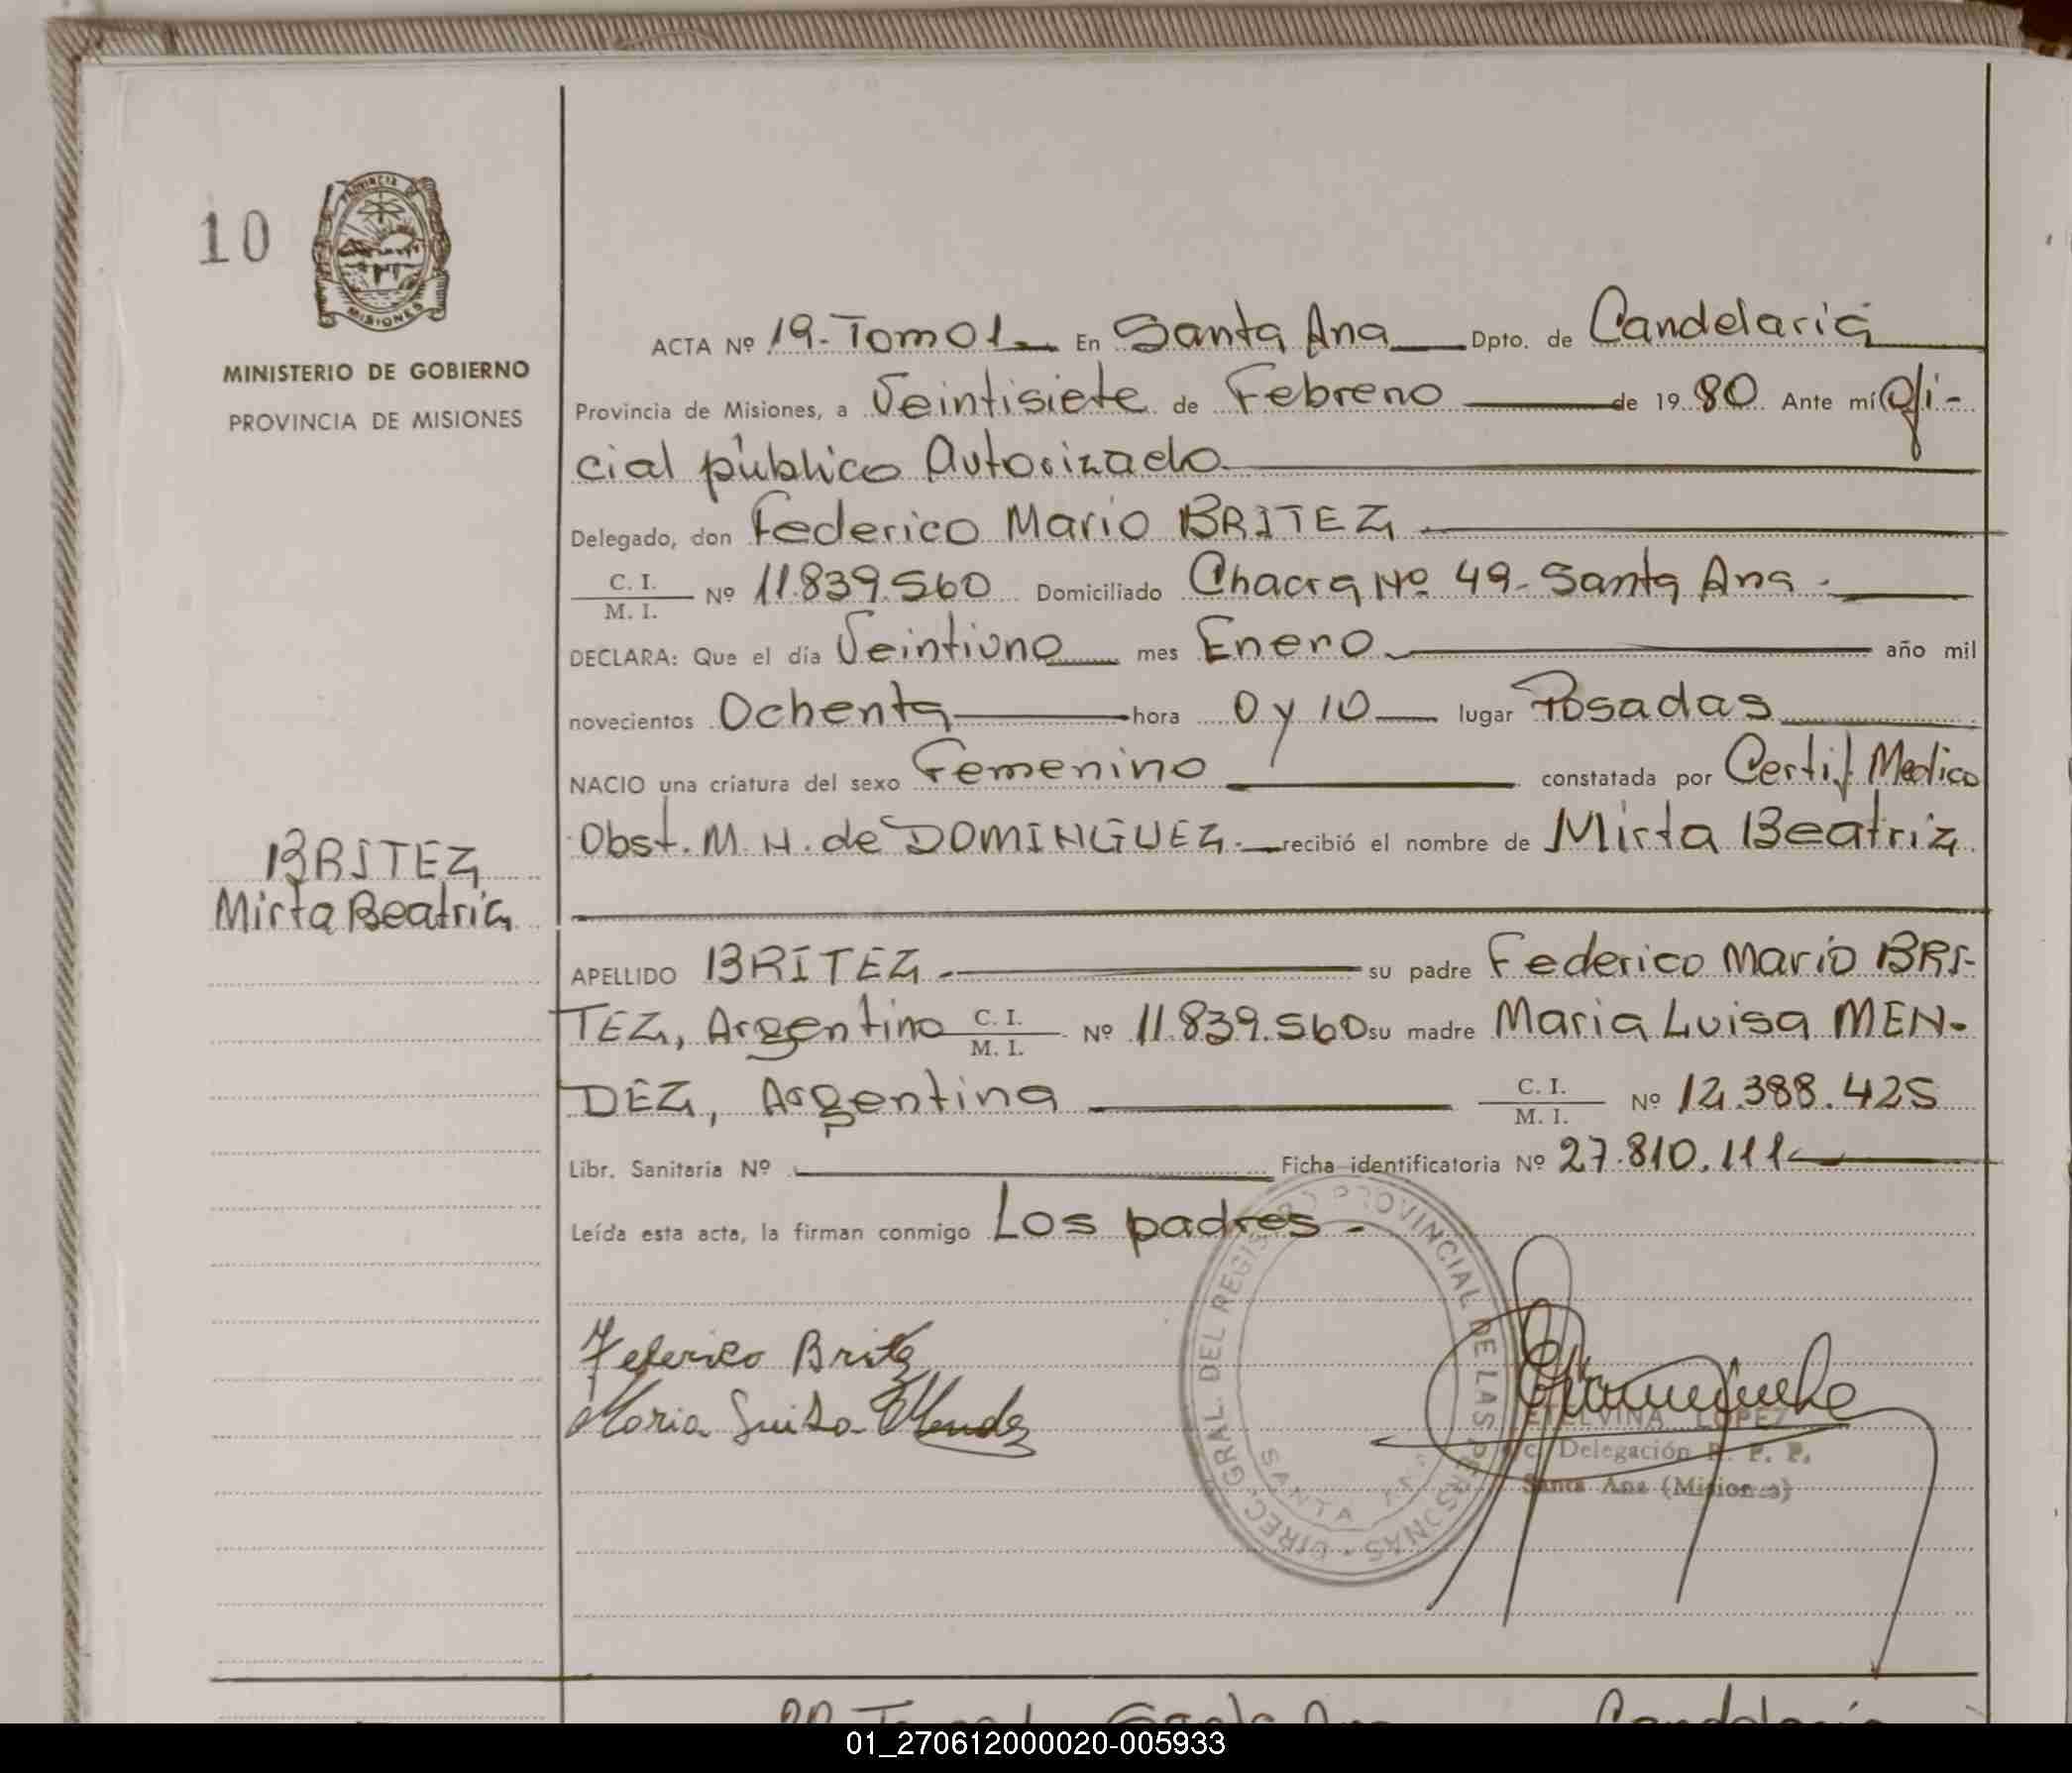 10
PROVINCIA DE
MISIONES
MINISTERIO DE GOBIERNO
PROVINCIA DE MISIONES
BRITEZ
Mirta Beatriz
ACTA Nº 19-Tomo 1 En Santa Ana Dpto. de Candelaria
Provincia de Misiones, a Veintisiete de Febrero de 19 80 Ante mí Ofi-
cial público Autorizado
Delegado, don Federico Mario BRITEZ
C. I. / M. I. Nº 11.839.560 Domiciliado Chacra Nº 49-Santa Ana.
DECLARA: Que el día Veintiuno mes Enero año mil
novecientos Ochenta hora 0 y 10 lugar Posadas
NACIO una criatura del sexo Femenino constatada por Certif Medico
Obst. M. H. de DOMINGUEZ. recibió el nombre de Mirta Beatriz
APELLIDO BRITEZ su padre Federico Mario BRI-
TEZ, Argentino C. I. / M. I. Nº 11.839.560 su madre Maria Luisa MEN-
DEZ, Argentina C. I. / M. I. Nº 12.388.425
Libr. Sanitaria Nº Ficha identificatoria Nº 27.810.111
Leída esta acta, la firman conmigo Los padres.
Federico Britez
Maria Luisa Mendez
DIREC. GRAL. DEL REGISTRO PROVINCIAL DE LAS PERSONAS
SANTA ANA
ETELVINA LOPEZ
Delegación R. P. P.
Santa Ana (Misiones)
Candelaria
01_270612000020-005933